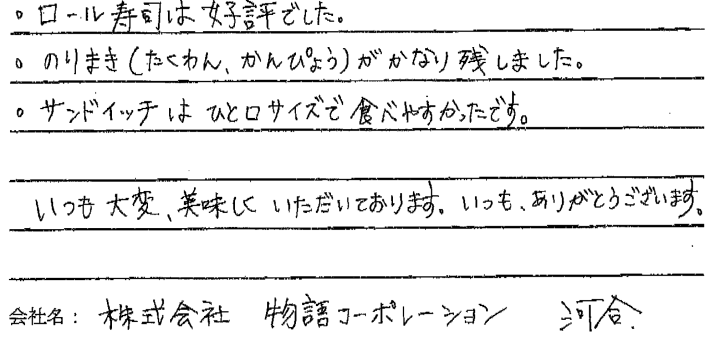 。ロール寿司は好評でした。
。のりまき(たくわん、かんぴょう)がかなり残しました。
。サンドイッチはひと口サイズで食べやすかったです。
いつも大変、美味しくいただいております。いつも、ありがとうございます。
会社名: 株式会社 物語コーポレーション 河合